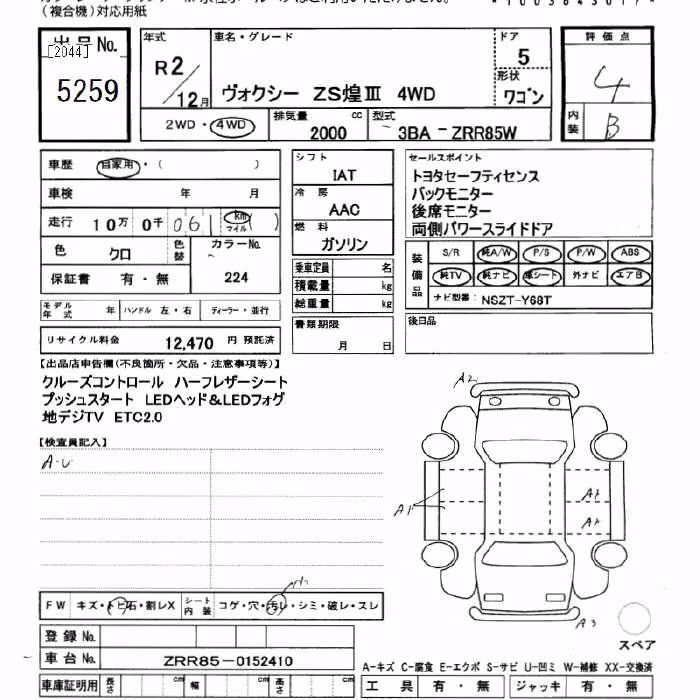 (複合機)対応用紙
出品No.
[2044]
5259
年式
R2/12月
車名・グレード
ヴォクシー ZS煌Ⅲ 4WD
ドア
5
形状
ワゴン
評価点
4
内装
B
2WD・4WD
排気量
2000 cc
型式
3BA-ZRR85W
車歴 自家用・( )
車検 年 月
走行 10万 0千 061 km マイル ( )
色 クロ
色替
カラーNo.
224
保証書 有・無
シフト
IAT
冷房
AAC
燃料
ガソリン
乗車定員 名
積載量 kg
総重量 kg
セールスポイント
トヨタセーフティセンス
バックモニター
後席モニター
両側パワースライドドア
装備品
S/R 純A/W P/S P/W ABS
純TV 純ナビ 革シート 外ナビ エアB
ナビ型番: NSZT-Y68T
モデル年式 年 ハンドル 左・右 ディーラー・並行
リサイクル料金 12,470 円 預託済
書類期限
月 日
後日品
【出品店申告欄(不良箇所・欠品・注意事項等)】
クルーズコントロール ハーフレザーシート
プッシュスタート LEDヘッド&LEDフォグ
地デジTV ETC2.0
【検査員記入】
A-U
A2
A1
A1
A1
A3
スペア
FW キズ・トビ石・割レX
シート内装 コゲ・穴・汚レ・シミ・破レ・スレ
登録No.
車台No. ZRR85-0152410
車庫証明用 長さ cm 幅 cm 高さ cm
A-キズ C-腐食 E-エクボ S-サビ U-凹ミ W-補修 XX-交換済
工具 有・無 ジャッキ 有・無